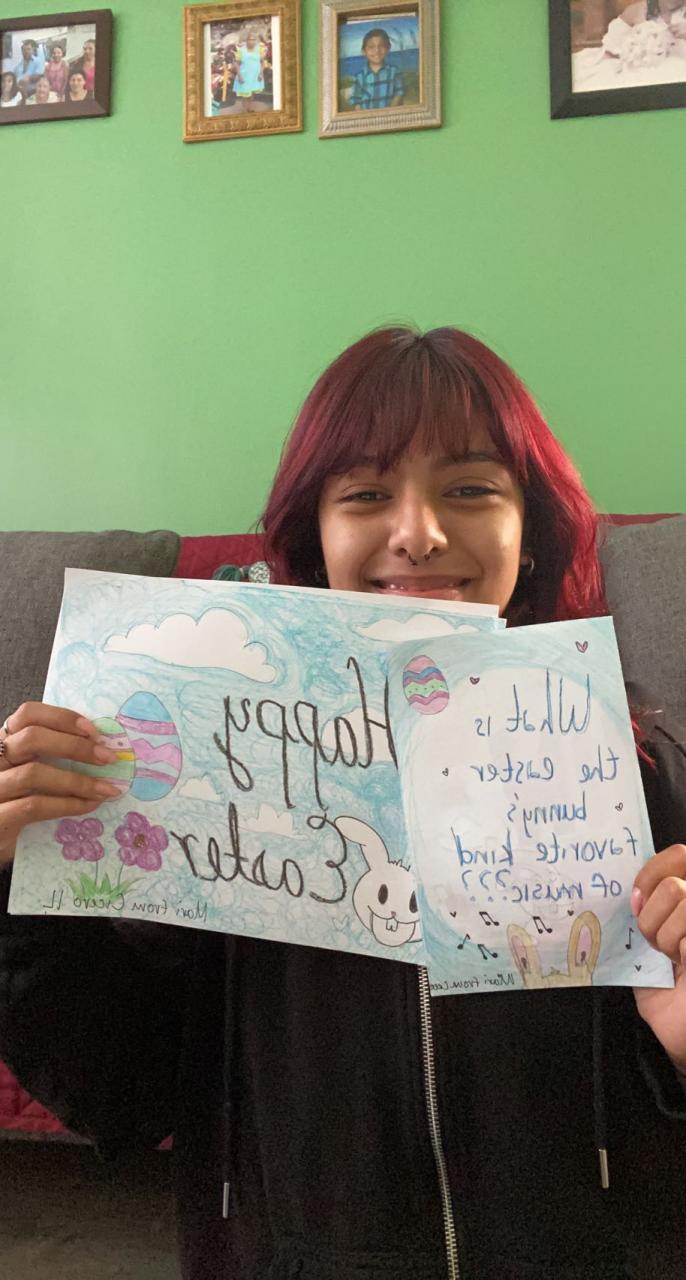 Happy
Easter
Mari from Cicero IL
What is
the easter
bunny's
favorite kind
of music???
Mari from